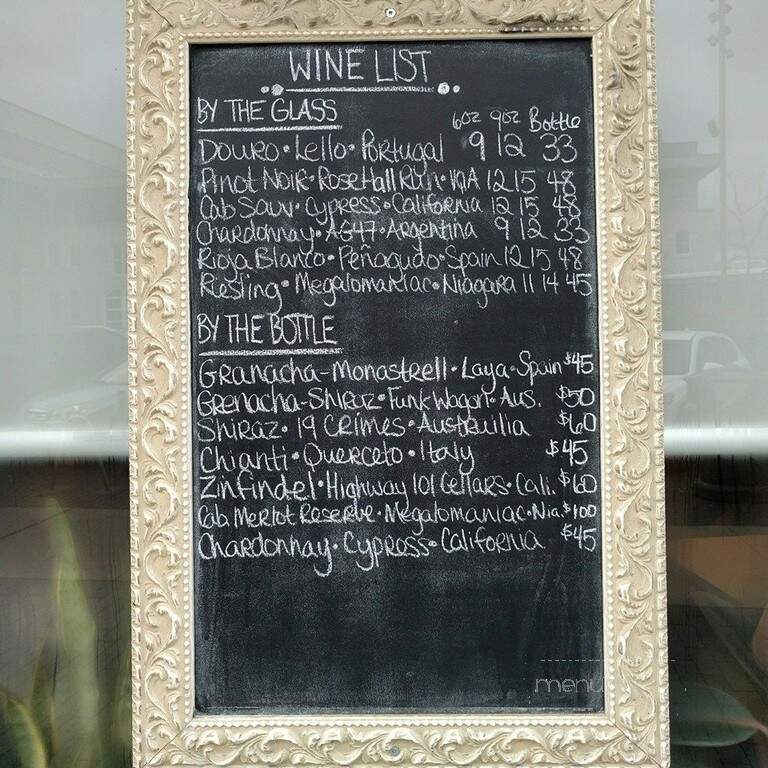 WINE LIST
BY THE GLASS 6oz 9oz Bottle
Douro • Lello • Portugal 9 12 33
Pinot Noir • Rose Hall Run • VQA 12 15 48
Cab Sauv • Cypress • California 12 15 48
Chardonnay • AG47 • Argentina 9 12 33
Rioja Blanco • Peñagudo • Spain 12 15 48
Riesling • Megalomaniac • Niagara 11 14 45
BY THE BOTTLE
Granacha-Monastrell • Laya • Spain $45
Grenacha-Shiraz • Funk Wagon • Aus. $50
Shiraz • 19 Crimes • Australia $60
Chianti • Querceto • Italy $45
Zinfindel • Highway 101 Cellars • Cali. $60
Cab Merlot Reserve • Megalomaniac • Nia. $100
Chardonnay • Cypress • California $45
menu